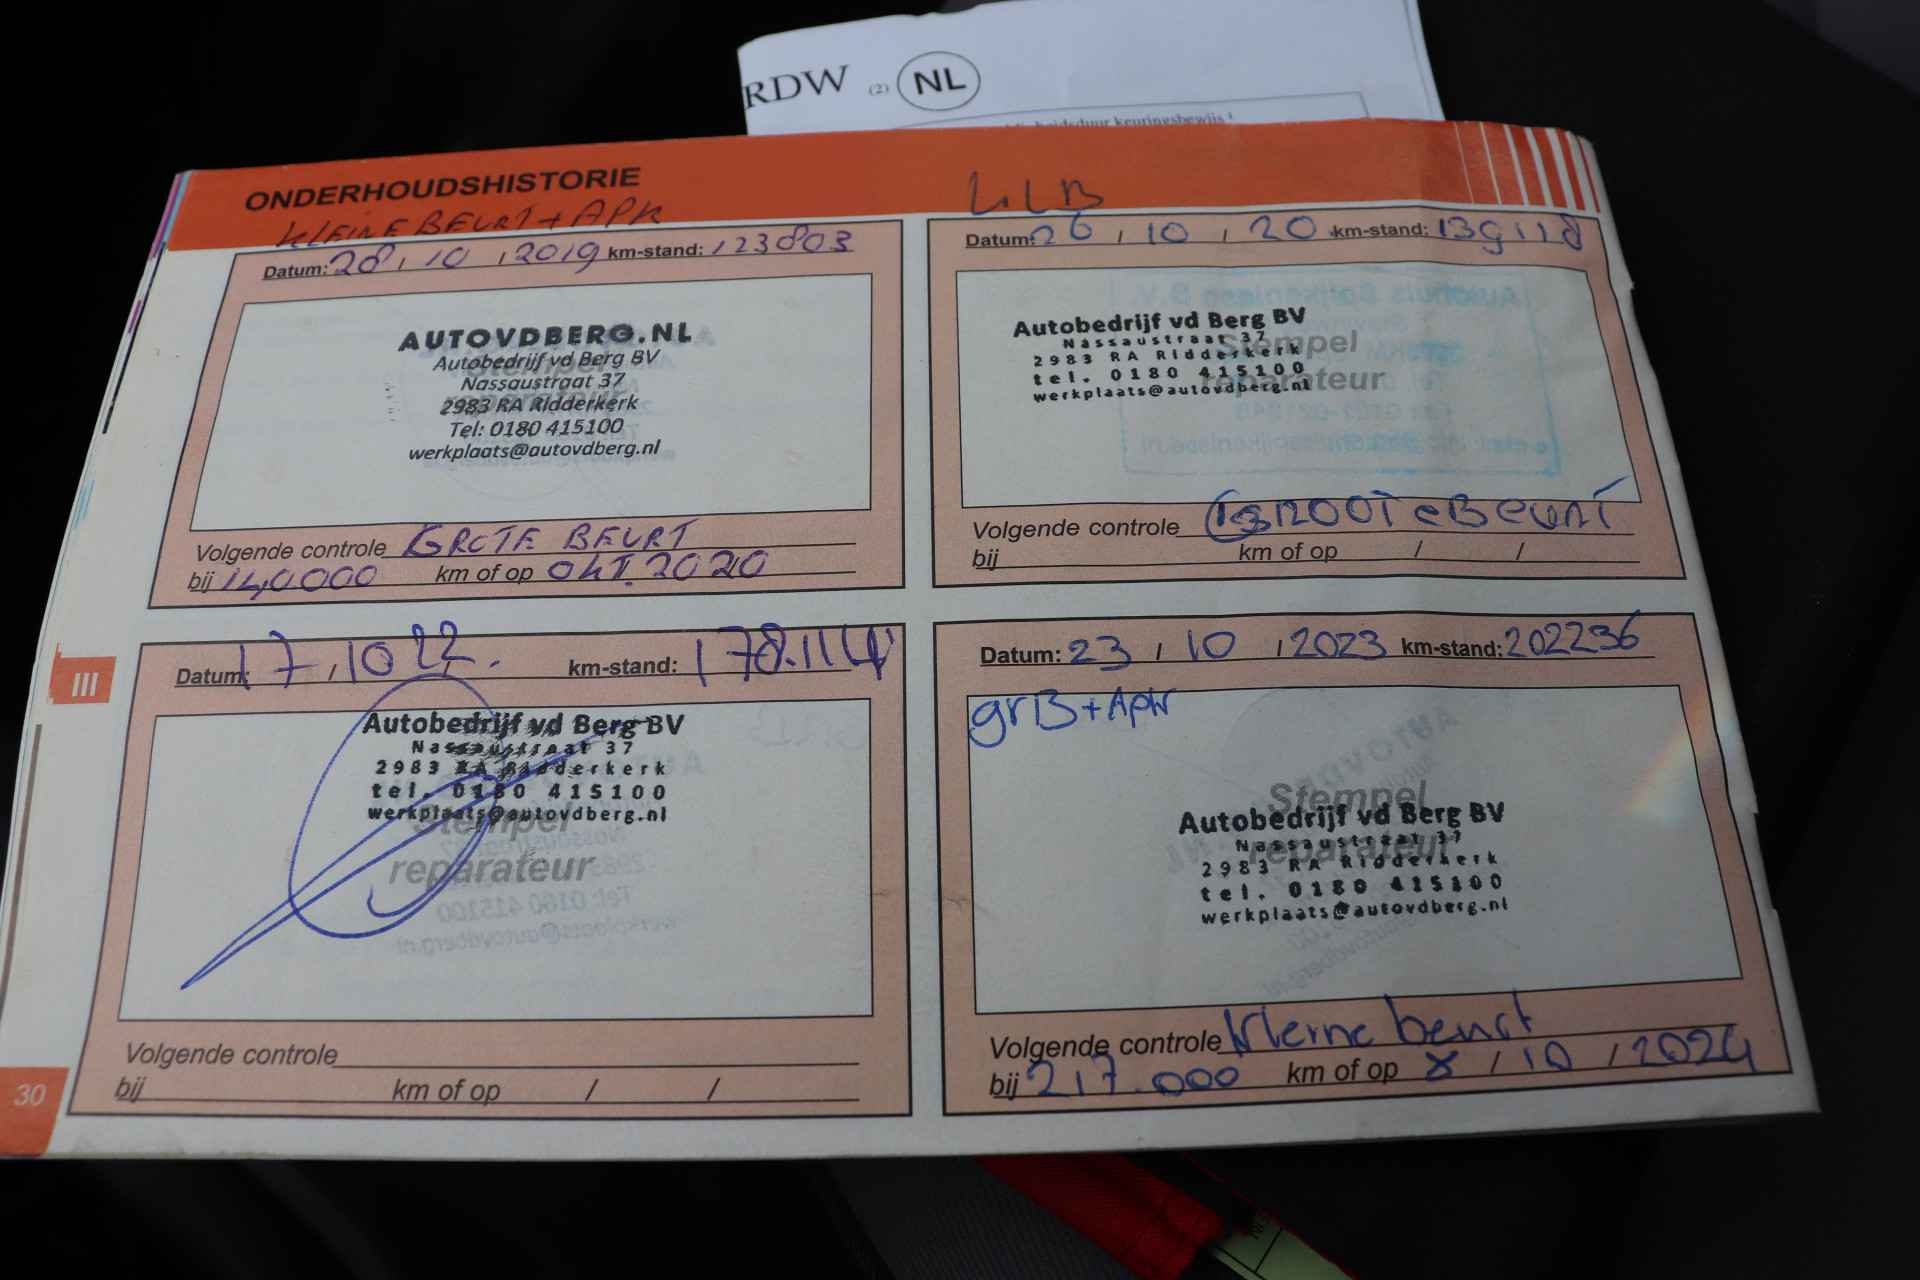 RDW (2) NL
keuringsbewijs
ONDERHOUDSHISTORIE
KLEINE BEURT + APK
Datum: 28 / 10 / 2019 km-stand: 123803
AUTOVDBERG.NL
Autobedrijf vd Berg BV
Stempel
Nassaustraat 37
reparateur
2983 RA Ridderkerk
Tel: 0180 415100
werkplaats@autovdberg.nl
Volgende controle GROTE BEURT
bij 140000 km of op OKT. 2020
Datum: 26 / 10 / 20 km-stand: 139118
Autobedrijf vd Berg BV
Nassaustraat 37
Stempel
2983 RA Ridderkerk
tel. 0180 415100
reparateur
werkplaats@autovdberg.nl
Volgende controle GROOTE BEURT
bij km of op / /
Datum: 17 / 10 22. km-stand: 178.114
Autobedrijf vd Berg BV
Nassaustraat 37
2983 RA Ridderkerk
tel. 0180 415100
werkplaats@autovdberg.nl
Stempel
reparateur
Volgende controle
bij km of op / /
Datum: 23 / 10 / 2023 km-stand: 202236
grB + APK
Stempel
Autobedrijf vd Berg BV
Nassaustraat 37
reparateur
2983 RA Ridderkerk
tel. 0180 415100
werkplaats@autovdberg.nl
Volgende controle kleine beurt
bij 217.000 km of op x / 10 / 2024
III
30